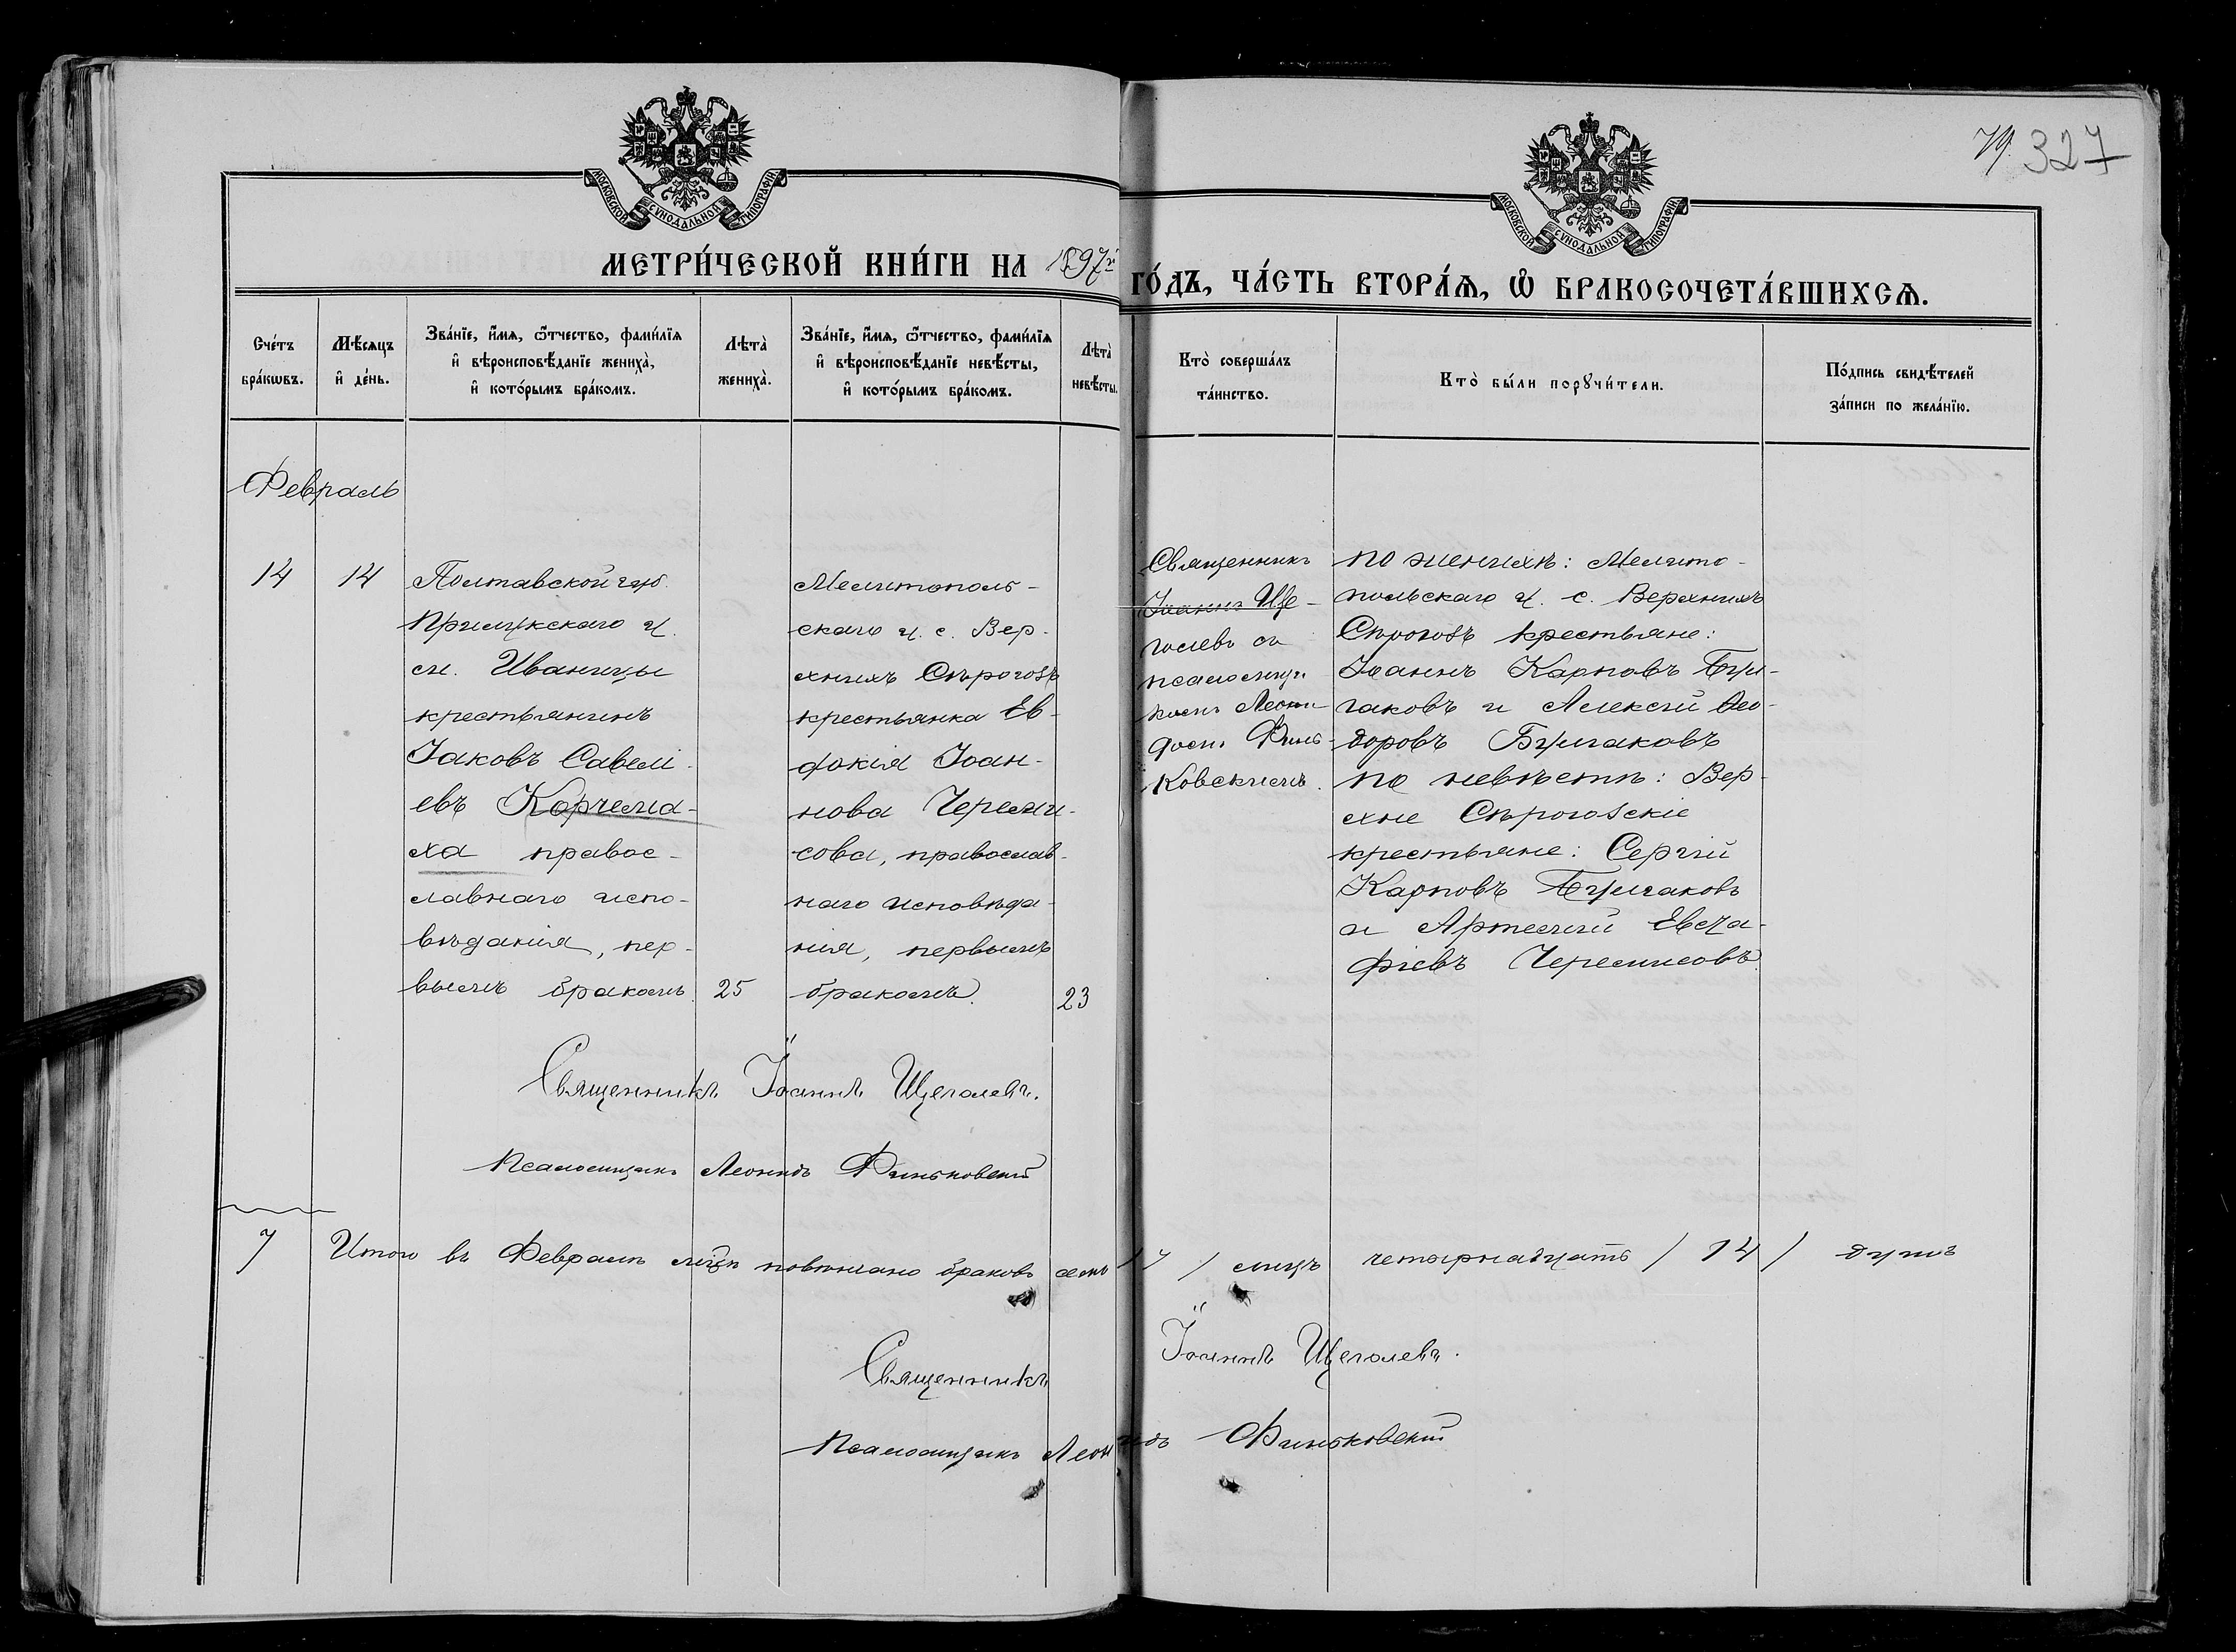 79. 327
МОСКОВСКОЙ СѴНОДАЛЬНОЙ ТИПОГРАФІИ
МОСКОВСКОЙ СѴНОДАЛЬНОЙ ТИПОГРАФІИ
МЕТРИ́ЧЕСКОЙ КНИ́ГИ НА 1897й ГО́ДЪ, ЧА́СТЬ ВТОРА́Ѧ, Ѡ҆ БРАКОСОЧЕТА́ВШИХСѦ.
Сче́тъ
бра́кѡвъ.
Мѣ́сяцъ
и҆ де́нь.
Зва́нїе, и҆́мя, ѻ҆́тчество, фами́лїя
и҆ вѣроисповѣ́данїе жениха̀,
и҆ кото́рымъ бра́комъ.
Лѣта̀
жениха̀.
Зва́нїе, и҆́мя, ѻ҆́тчество, фами́лїя
и҆ вѣроисповѣ́данїе невѣ́сты,
и҆ кото́рымъ бра́комъ.
Лѣта̀
невѣ́сты.
Кто̀ соверша́лъ
та́инство.
Кто̀ бы́ли порꙋчи́тели.
По́дпись свидѣ́телей
за́писи по жела́нїю.
Февраль
14
14
Полтавской губ.
Прилукскаго у.
м. Иваницы
крестьянинъ
Іаковъ Савелі-
евъ Корчема-
ха правос-
лавнаго испо-
вѣданія, пер-
вымъ бракомъ.
25
Мелитополь-
скаго у. с. Вер-
хнихъ Сѣрогозъ
крестьянка Ев-
докія Іоан-
нова Череми-
сова, православ-
наго исповѣда-
нія, первымъ
бракомъ.
23
Священникъ
Іоаннъ Ще-
голевъ съ
псаломщи-
комъ Леони-
домъ Финь-
ковскимъ.
по женихѣ: Мелито-
польскаго у. с. Верхнихъ
Сѣрогозъ крестьяне:
Іоаннъ Карповъ Бул-
гаковъ и Алексѣй Ѳео-
доровъ Булгаковъ
по невѣстѣ: Вер-
хне Сѣрогозскіе
крестьяне: Сергій
Карповъ Булгаковъ
и Артемій Евста-
фіевъ Черемисовъ.
Священникъ Іоаннъ Щеголевъ.
Псаломщикъ Леонидъ Финьковскій
7 Итого въ Февралѣ м҃цѣ повѣнчано браковъ семь / 7 / лицъ четырнадцать / 14 / душъ
Священникъ Іоаннъ Щеголевъ.
Псаломщикъ Леонидъ Финьковскій